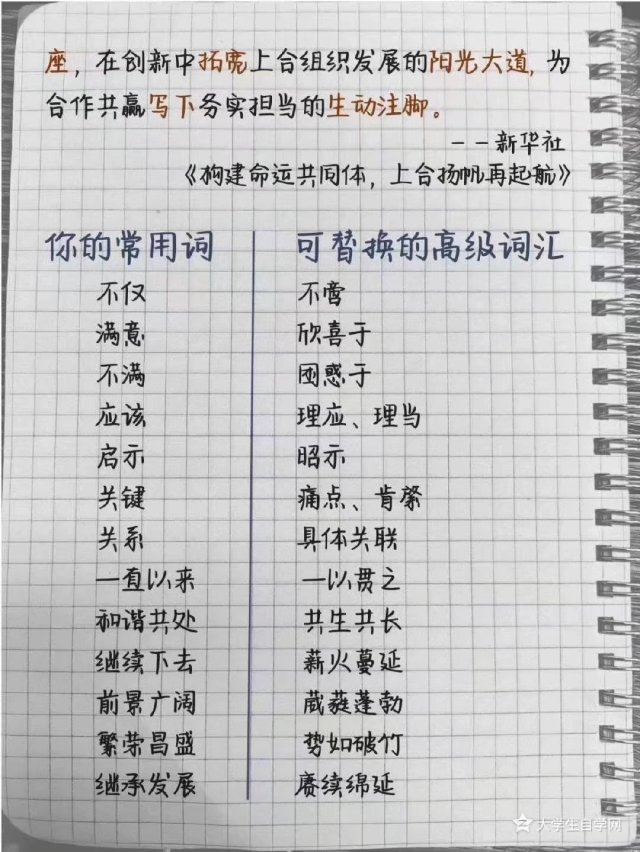 座，在创新中拓宽上合组织发展的阳光大道，为
合作共赢写下务实担当的生动注脚。
——新华社
《构建命运共同体，上合扬帆再起航》
你的常用词 可替换的高级词汇
不仅 不啻
满意 欣喜于
不满 困惑于
应该 理应、理当
启示 昭示
关键 痛点、肯綮
关系 具体关联
一直以来 一以贯之
和谐共处 共生共长
继续下去 薪火蔓延
前景广阔 葳蕤蓬勃
繁荣昌盛 势如破竹
继承发展 赓续绵延
大学生自学网